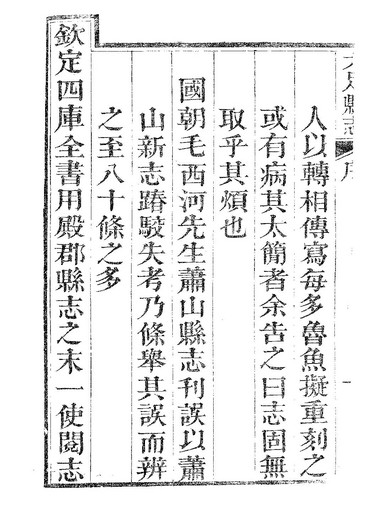 大足縣志 序 一
人以轉相傳寫每多魯魚擬重刻之
或有病其太簡者余告之曰志固無
取乎其煩也
國朝毛西河先生蕭山縣志刊誤以蕭
山新志踳駮失考乃條舉其誤而辨
之至八十條之多
欽定四庫全書用殿郡縣志之末一使閱志